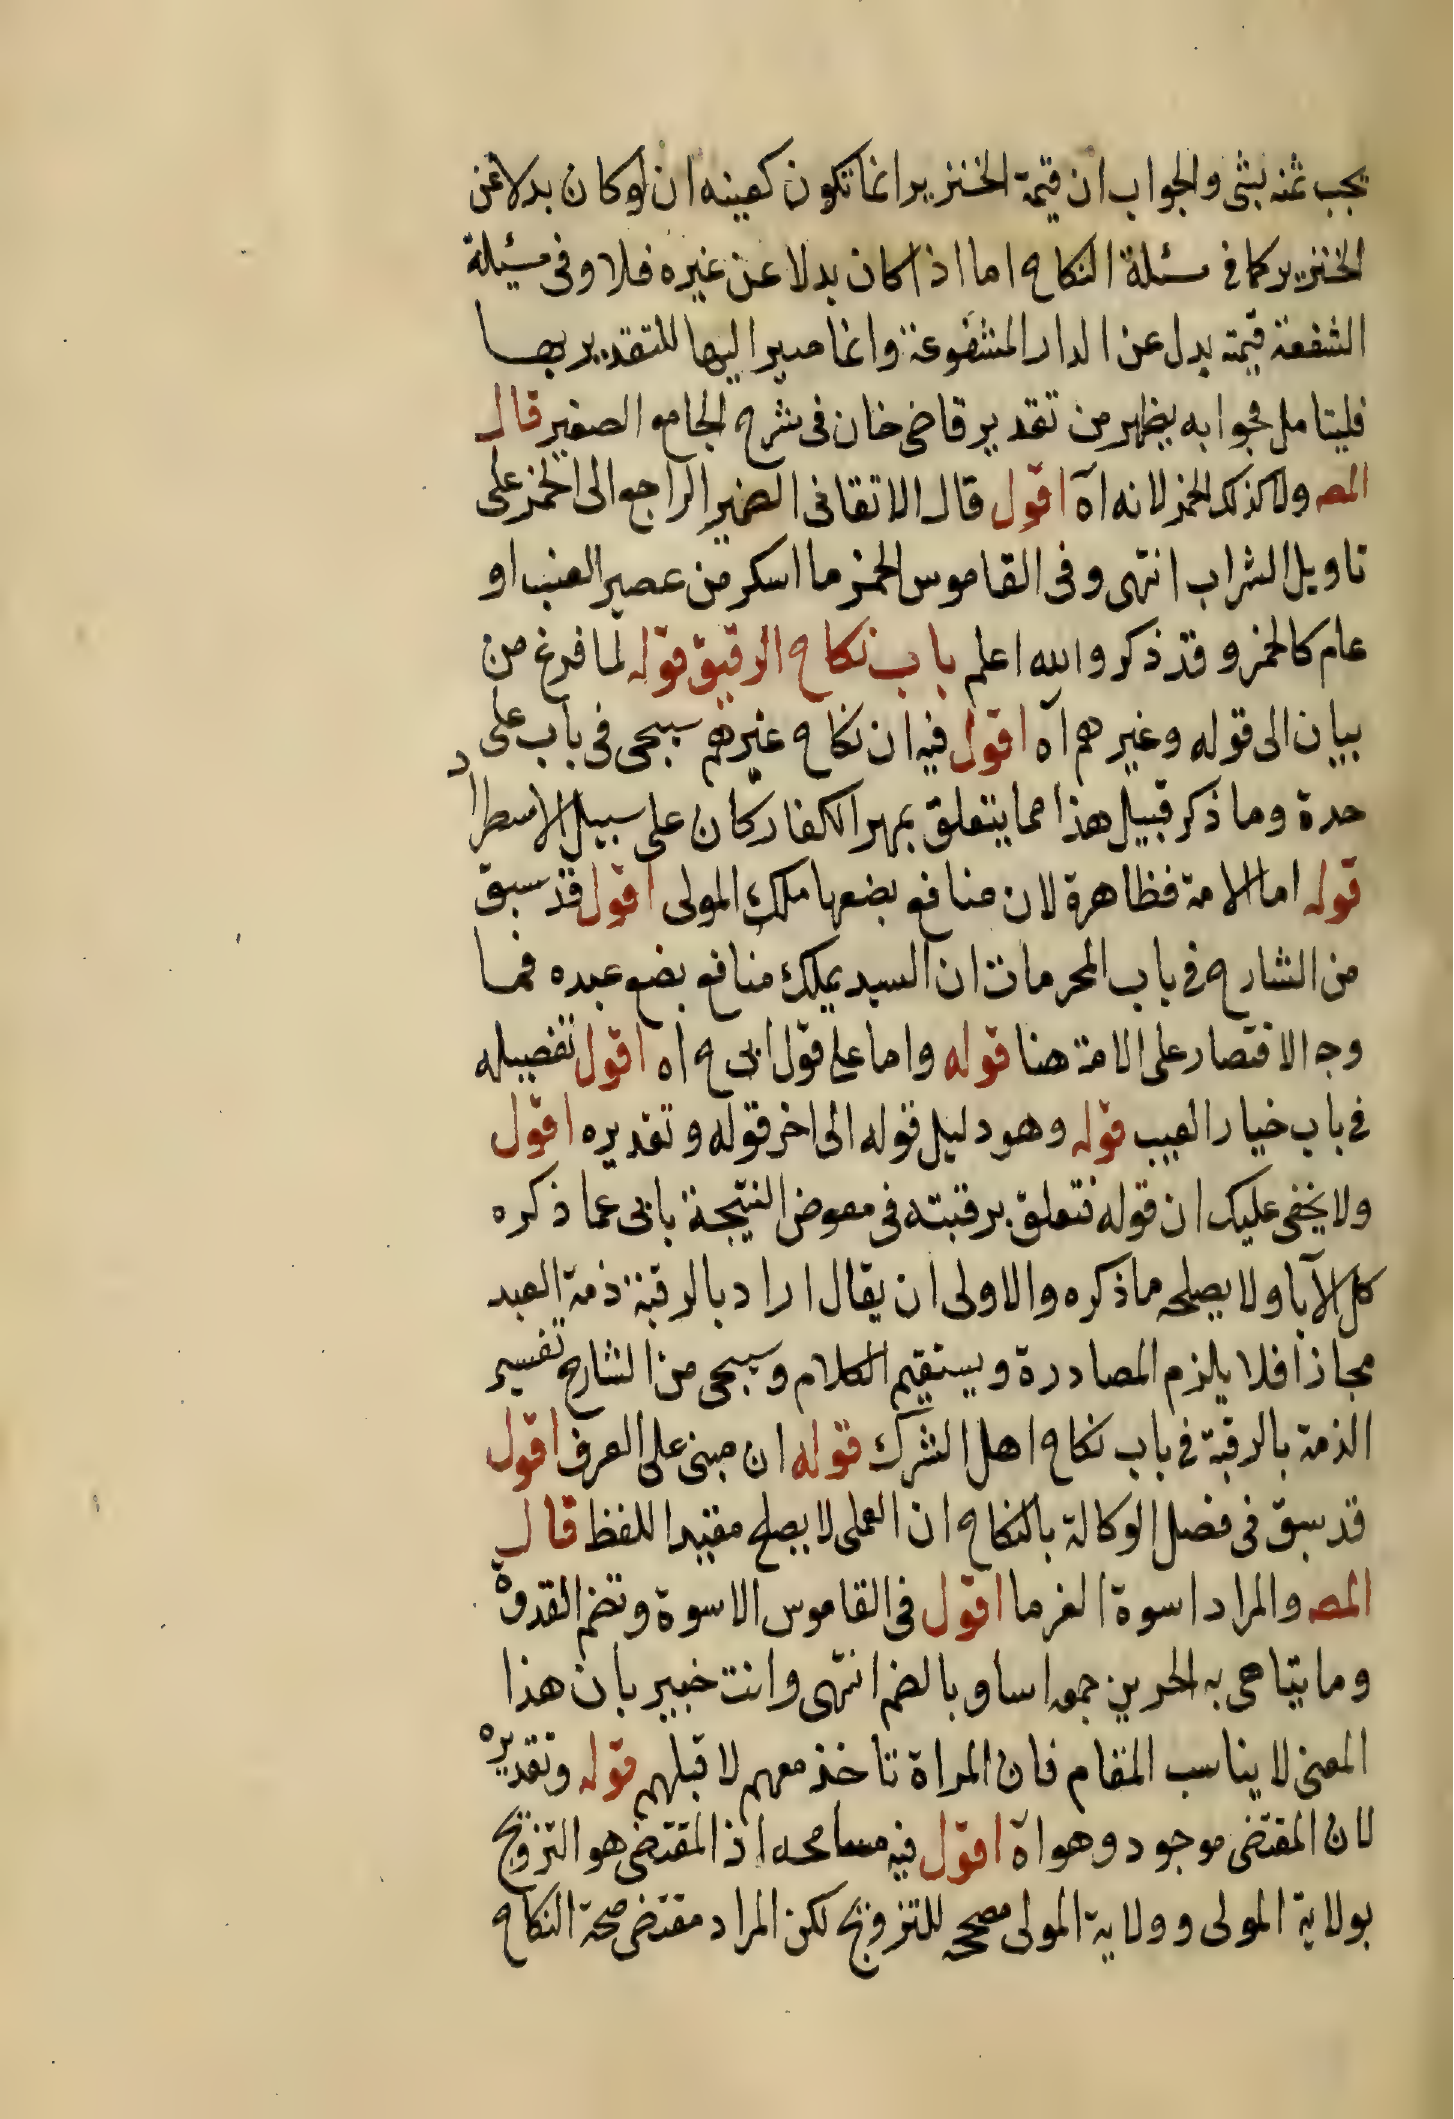 يجب ثمنه بشى والجواب ان قيمة الخنزير انما تكون كعينه ان لو كان بدلا عن
الخنزير كما فى مسئلة النكاح اما اذا كان بدلا عن غيره فلا وفى مسئلة
الشفعة قيمته بدل عن الدار المشفوعة وانما صير اليها للتقدير بها
فليتامل فجوابه يظهر من تقدير قاضى خان فى شرح الجامع الصغير قال
المص ولا كذلك الخمر لانه اه اقول قال الاتقانى الضمير الراجع الى الخمر على
تاويل الشراب انتهى وفى القاموس الخمر ما اسكر من عصير العنب او
عام كالخمرة وقد ذكر والله اعلم باب نكاح الرقيق قوله لما فرغ من
بيان الى قوله وغيرهم اه اقول فيه ان نكاح غيرهم سيجى فى باب على
حدة وما ذكر قبيل هذا مما يتعلق بمهر الكفار كان على سبيل الاسطراد
قوله اما الامة فظاهرة لان منافع بضعها ملك المولى اقول قد سبق
من الشارح فى باب المحرمات ان السيد يملك منافع بضع عبده فما
وجه الاقتصار على الامة هنا قوله واما على قول ابى ح اه اقول تفصيله
فى باب خيار العيب قوله وهو دليل قوله الى اخر قوله وتقديره اقول
ولا يخفى عليك ان قوله فتعلق برقبته فى معرض النتيجة يابى عما ذكره
كل الآبا ولا يصلحه ما ذكره والاولى ان يقال اراد بالرقبة ذمة العبد
مجازا فلا يلزم المصادرة ويستقيم الكلام وسيجى من الشارح تفسير
الذمة بالرقبة فى باب نكاح اهل الشرك قوله ان مبنى على العرف اقول
قد سبق فى فصل الوكالة بالنكاح ان العملى لا يصلح مقيدا للفظ قال
المص والمراد اسوة الغرما اقول فى القاموس الاسوة وتضم القدوة
وما يتاسى به الحزين جمعه اسا وبالضم انتهى وانت خبير بان هذا
المعنى لا يناسب المقام فان المراة تاخذ معهم لا قبلهم قوله وتقديره
لان المقتضى موجود وهو اه اقول فيه مسامحه اذ المقتضى هو التزويج
بولاية المولى وولاية المولى مصححه للتزويج لكن المراد مقتضى صحة النكاح